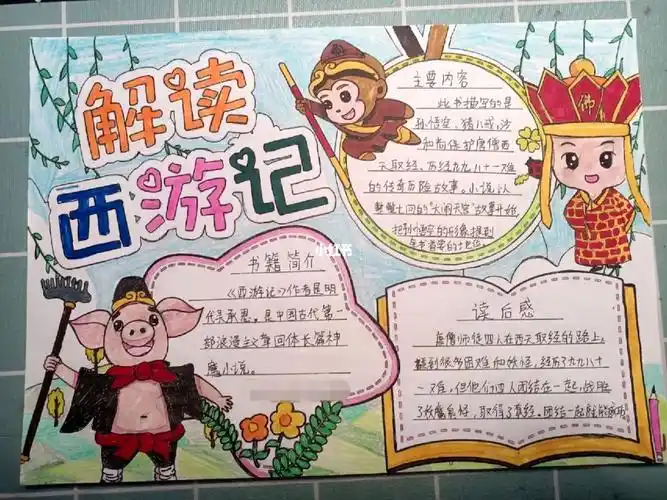 解读
西游记
主要内容
此书描写的是
孙悟空、猪八戒、沙
和尚保护唐僧西
天取经、历经九九八十一难
的传奇历险故事。小说以
整整七回的"大闹天宫"故事开始
把孙悟空的形象提到
全书首要的地位
佛
小红书
书籍简介
《西游记》作者是明
代吴承恩。是中国古代第一
部浪漫主义章回体长篇神
魔小说。
读后感
唐僧师徒四人在西天取经的路上,
碰到很多困难和妖怪,经历九九八十
一难,但他们四人团结在一起,战胜
了妖魔鬼怪,取得了真经。团结一起